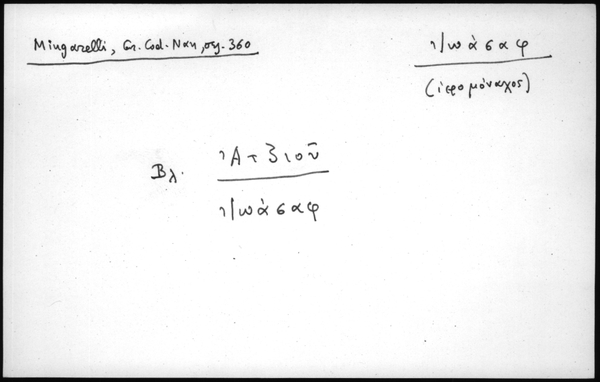 Mingarelli, Gr. Cod. Nan, σσ. 360
Ἰωάσαφ
(ἱερομόναχος)
Βλ.
Ἰωάσαφ